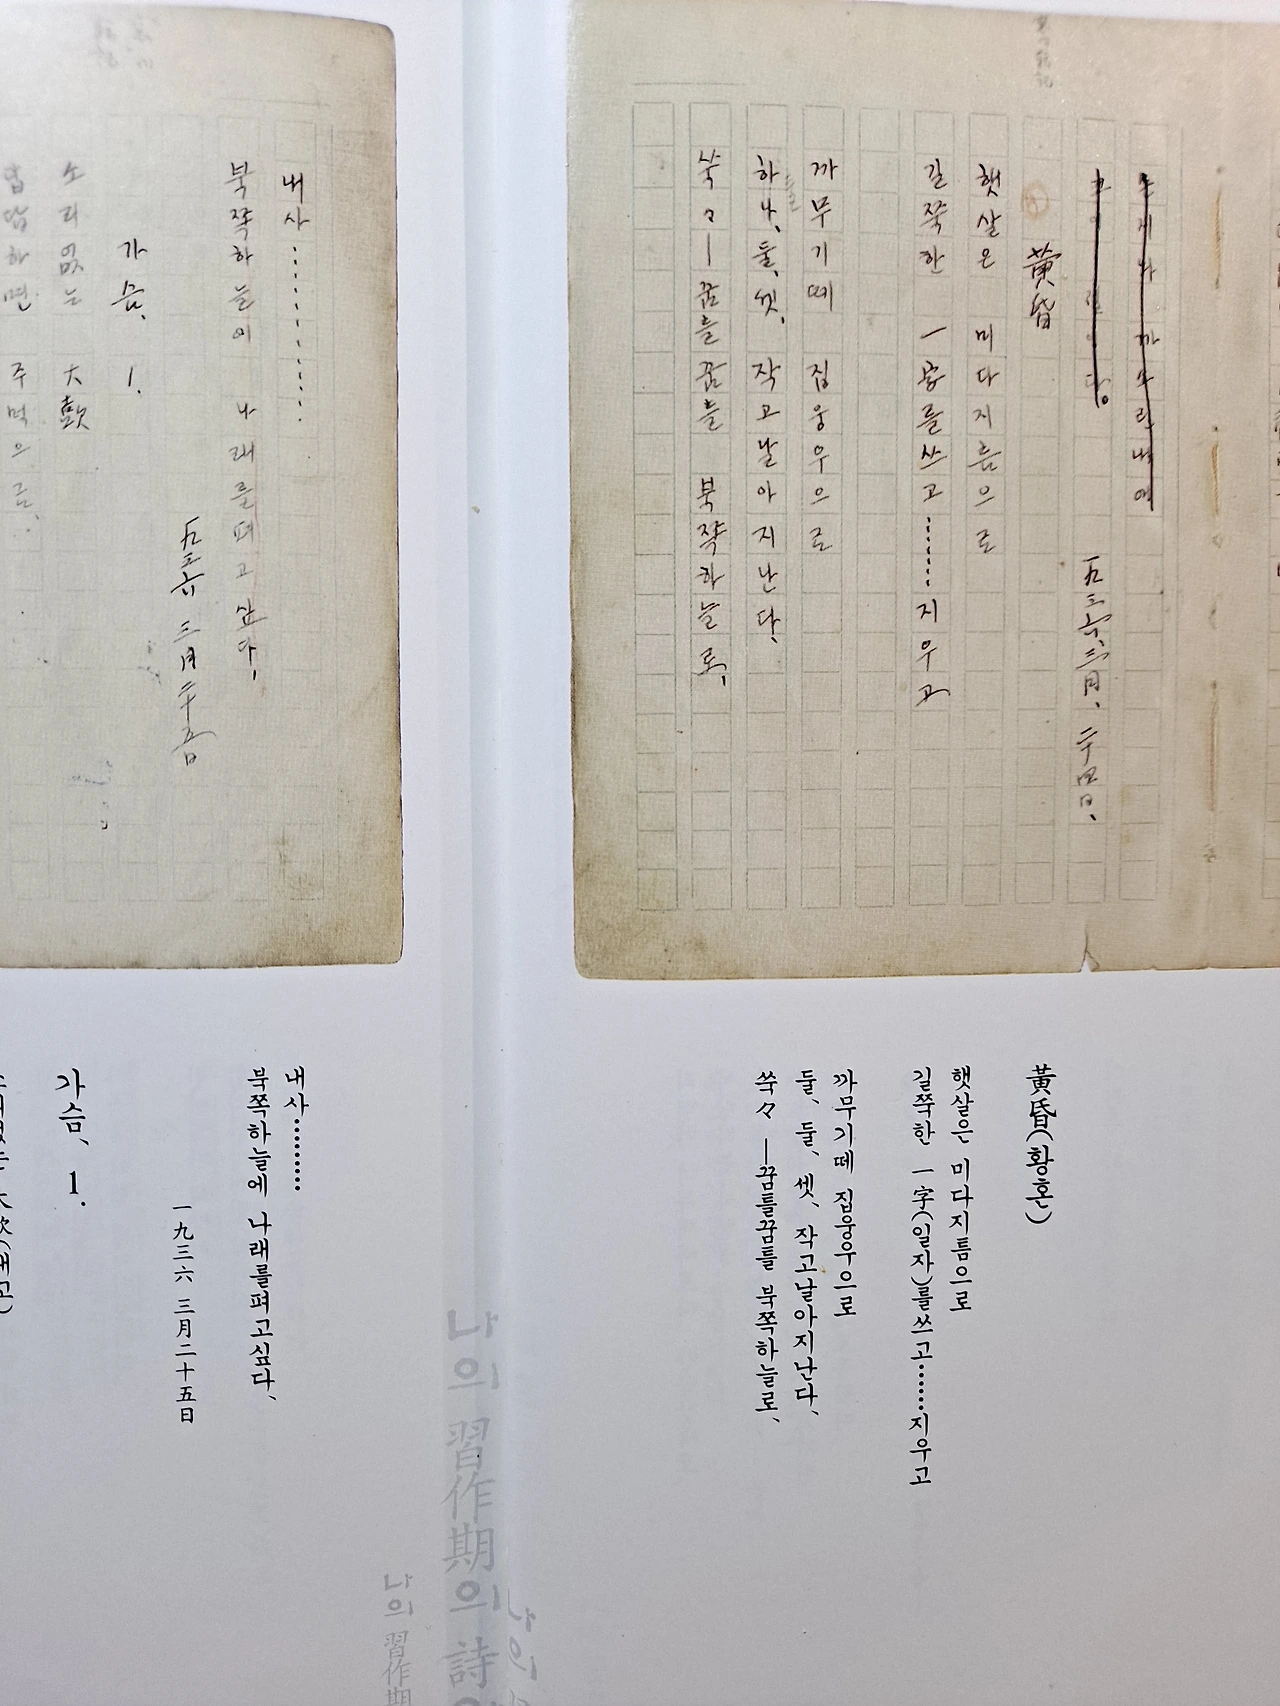 一九三六、三月、二十四日、
黃昏
햇살은 미다지틈으로
길쭉한 一字를쓰고⋯⋯지우고
까무기떼 집웅우으로
하나、둘、셋、작고날아지난다、
쑥々—꿈틀꿈틀 북쪽하늘로、
내사⋯⋯⋯
북쪽하늘에 나래를펴고싶다、
一九三六 三月二十五日
가슴、1.
소리없는 大鼓
답답하면 주먹으로
黃昏(황혼)
햇살은 미다지틈으로
길쭉한 一字(일자)를쓰고⋯⋯지우고
까무기떼 집웅우으로
둘、둘、셋、작고날아지난다、
쑥々 —꿈틀꿈틀 북쪽하늘로、
내사⋯⋯⋯
북쪽하늘에 나래를펴고싶다、
一九三六 三月二十五日
가슴、1.
나의 習作期의 詩
나의 習作期
나의